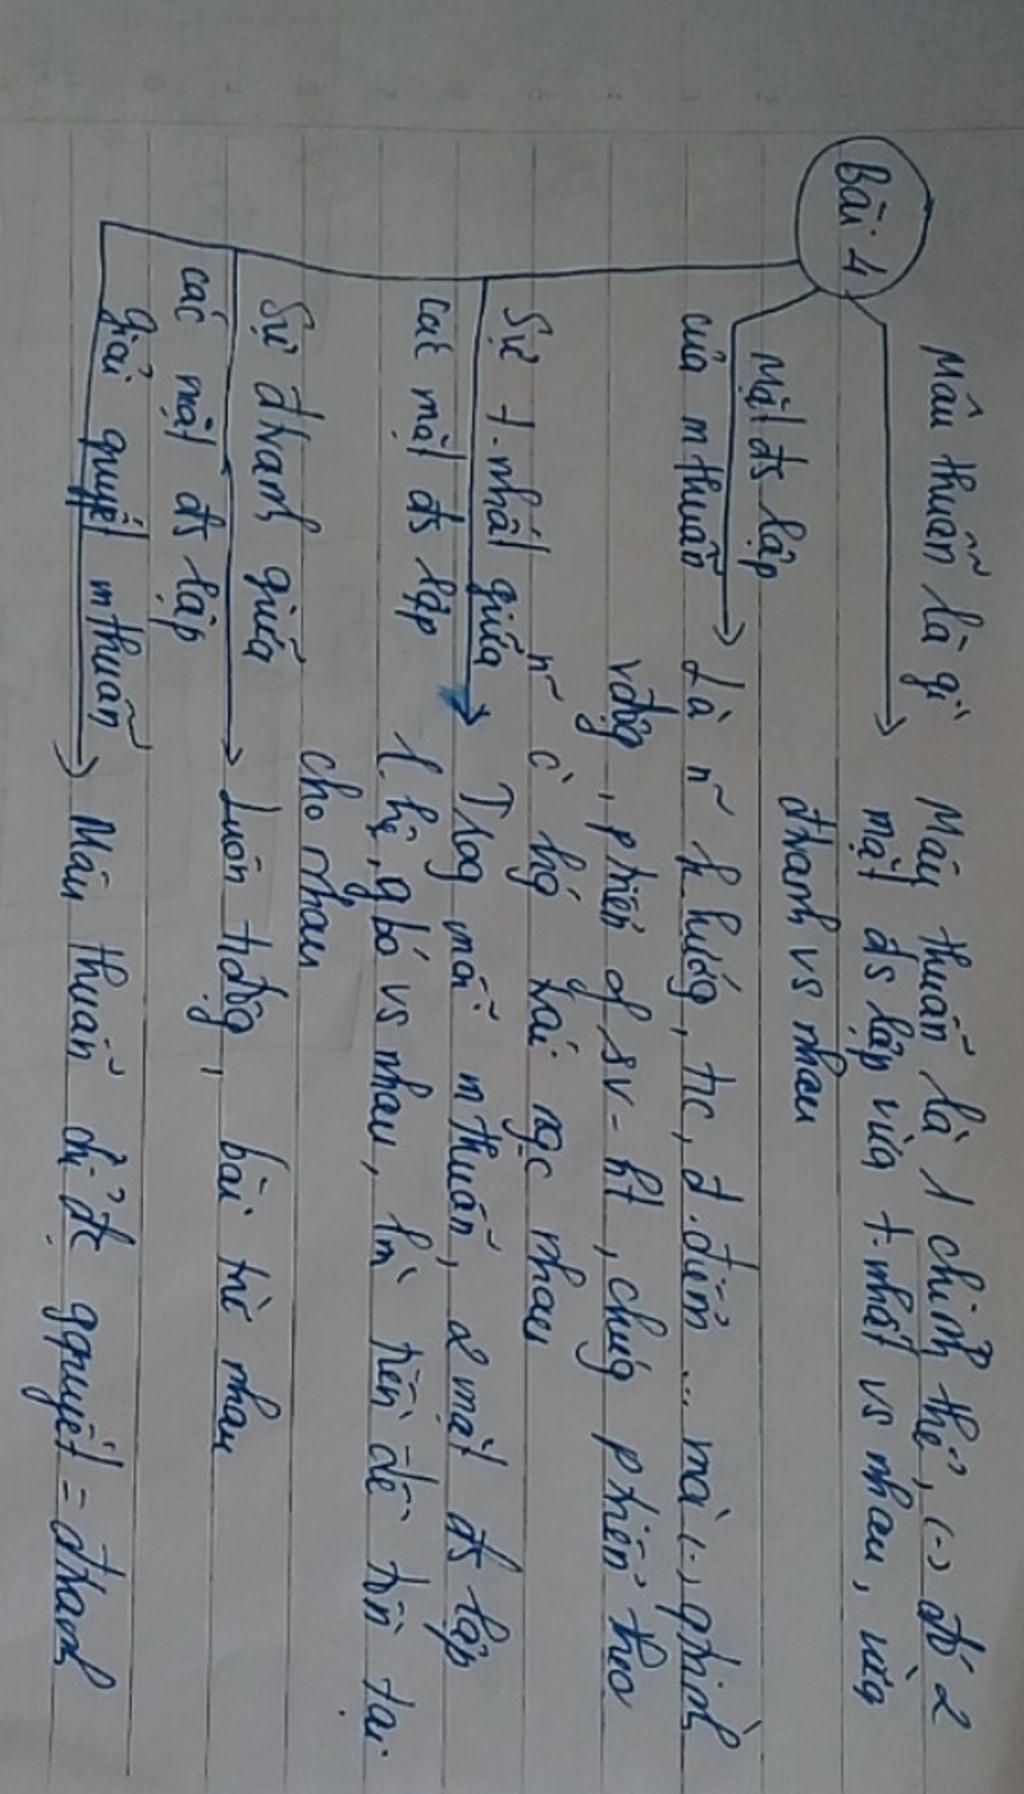 Bài 4
Mâu thuẫn là gì
Mâu thuẫn là 1 chỉnh thể, (.) đó 2
mặt đs lập vừa t.nhất vs nhau, vừa
đtranh vs nhau
Mặt đs lập
của mthuẫn
Là n~ k.hướg, t/c, đ.điểm ... mà (.) qtrình
vđộg, ptriển of sv-ht, chúg ptriển theo
n~ c` hg trái ngc nhau
Sự t.nhất giữa
các mặt đs lập
Trog mỗi mthuẫn, 2 mặt đs lập
l.hệ, gbó vs nhau, lm` tiền đề tồn tại
cho nhau
Sự đtranh giữa
các mặt đs lập
Luôn t.độg, bài trừ nhau
giải quyết mthuẫn
Mâu thuẫn chỉ đc gquyết = đtranh